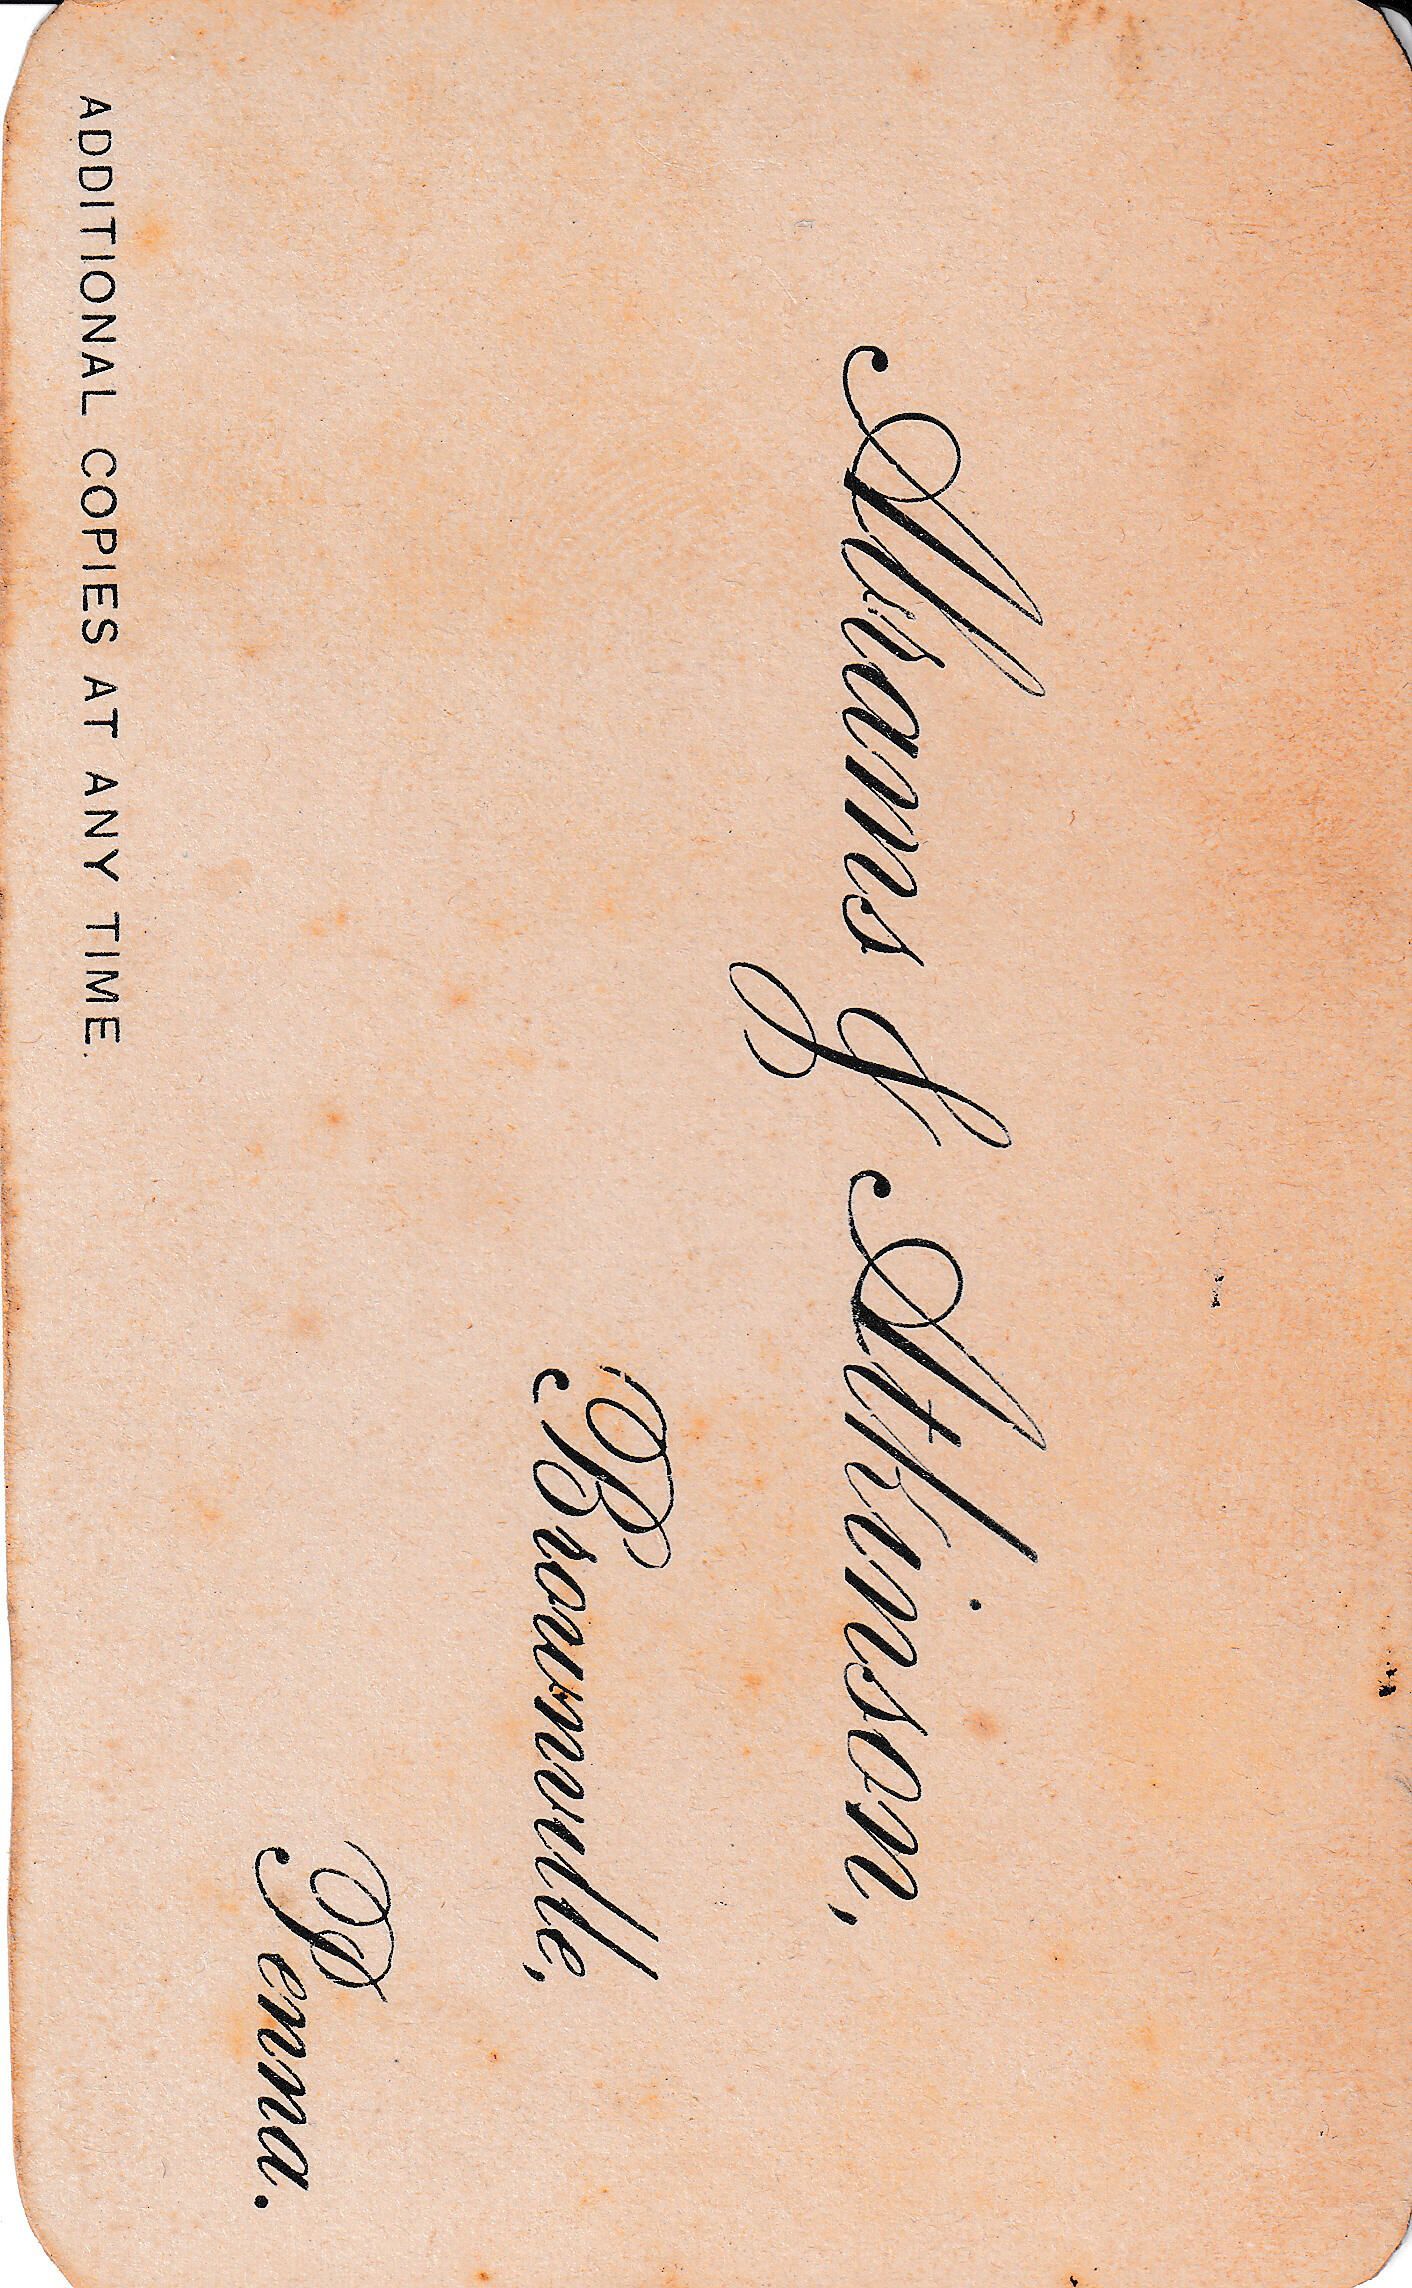 Abrams & Atkinson,
Brownville,
Penna.
ADDITIONAL COPIES AT ANY TIME.